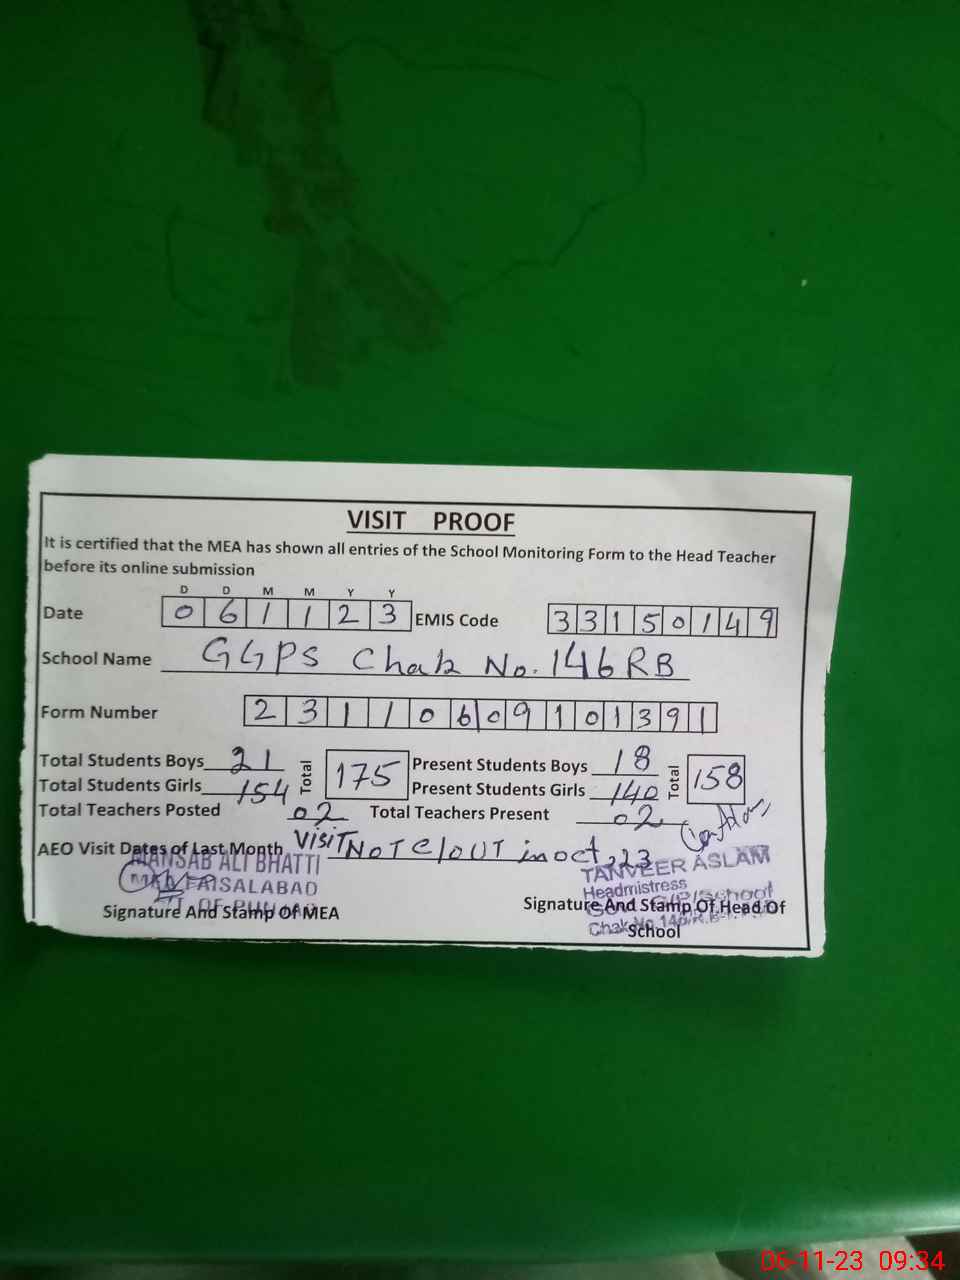 VISIT PROOF
It is certified that the MEA has shown all entries of the School Monitoring Form to the Head Teacher
before its online submission
D D M M Y Y
Date 0 6 1 1 2 3 EMIS Code 3 3 1 5 0 1 4 9
School Name GGPS Chak No. 146 RB
Form Number 2 3 1 1 0 6 0 9 1 0 1 3 9 1
Total Students Boys 21 Total 175 Present Students Boys 18 Total 158
Total Students Girls 154 Present Students Girls 140
Total Teachers Posted 02 Total Teachers Present 02
AEO Visit Dates of Last Month VISIT NOT C/OUT in oct, 23
MANSAB ALI BHATTI
FAISALABAD
Signature And Stamp Of MEA
TANVEER ASLAM
Headmistress
School
Signature And Stamp Of Head Of
Chak No.
School
06-11-23 09:34